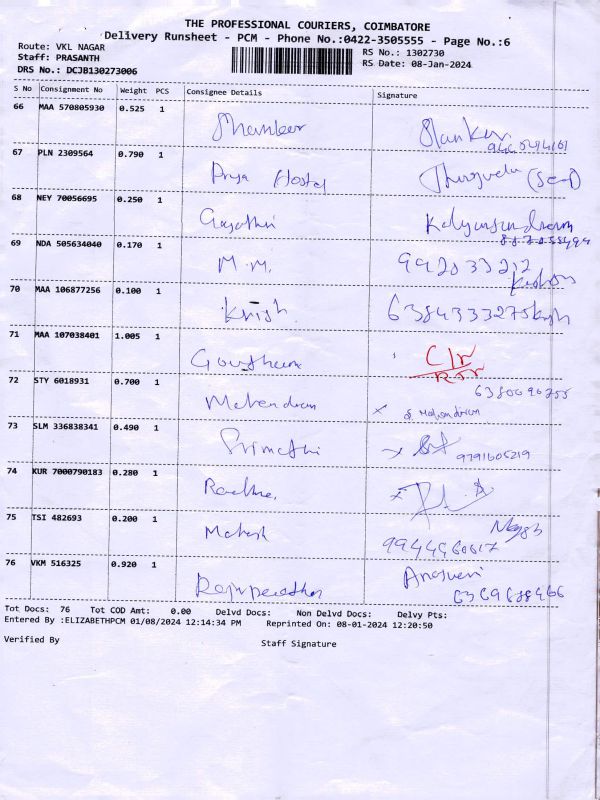 THE PROFESSIONAL COURIERS, COIMBATORE
Delivery Runsheet - PCM - Phone No.:0422-3505555 - Page No.:6
Route: VKL NAGAR
Staff: PRASANTH
DRS No.: DCJB130273006
RS No.: 1302730
RS Date: 08-Jan-2024
S No Consignment No Weight PCS Consignee Details Signature
66 MAA 570805930 0.525 1
67 PLN 2309564 0.790 1 Priya Hostel
68 NEY 70056695 0.250 1 Gayathri Kalyansundram
69 NDA 505634040 0.170 1 M.M.
70 MAA 106877256 0.100 1 Krish 6384333275
71 MAA 107038401 1.005 1 Goutham
72 STY 6018931 0.700 1 Mahendran
73 SLM 336838341 0.490 1 Srimathi 9791605219
74 KUR 7000790183 0.280 1 Radha
75 TSI 482693 0.200 1 Mahesh
76 VKM 516325 0.920 1
Tot Docs: 76 Tot COD Amt: 0.00 Delvd Docs: Non Delvd Docs: Delvy Pts:
Entered By :ELIZABETHPCM 01/08/2024 12:14:34 PM Reprinted On: 08-01-2024 12:20:50
Verified By Staff Signature